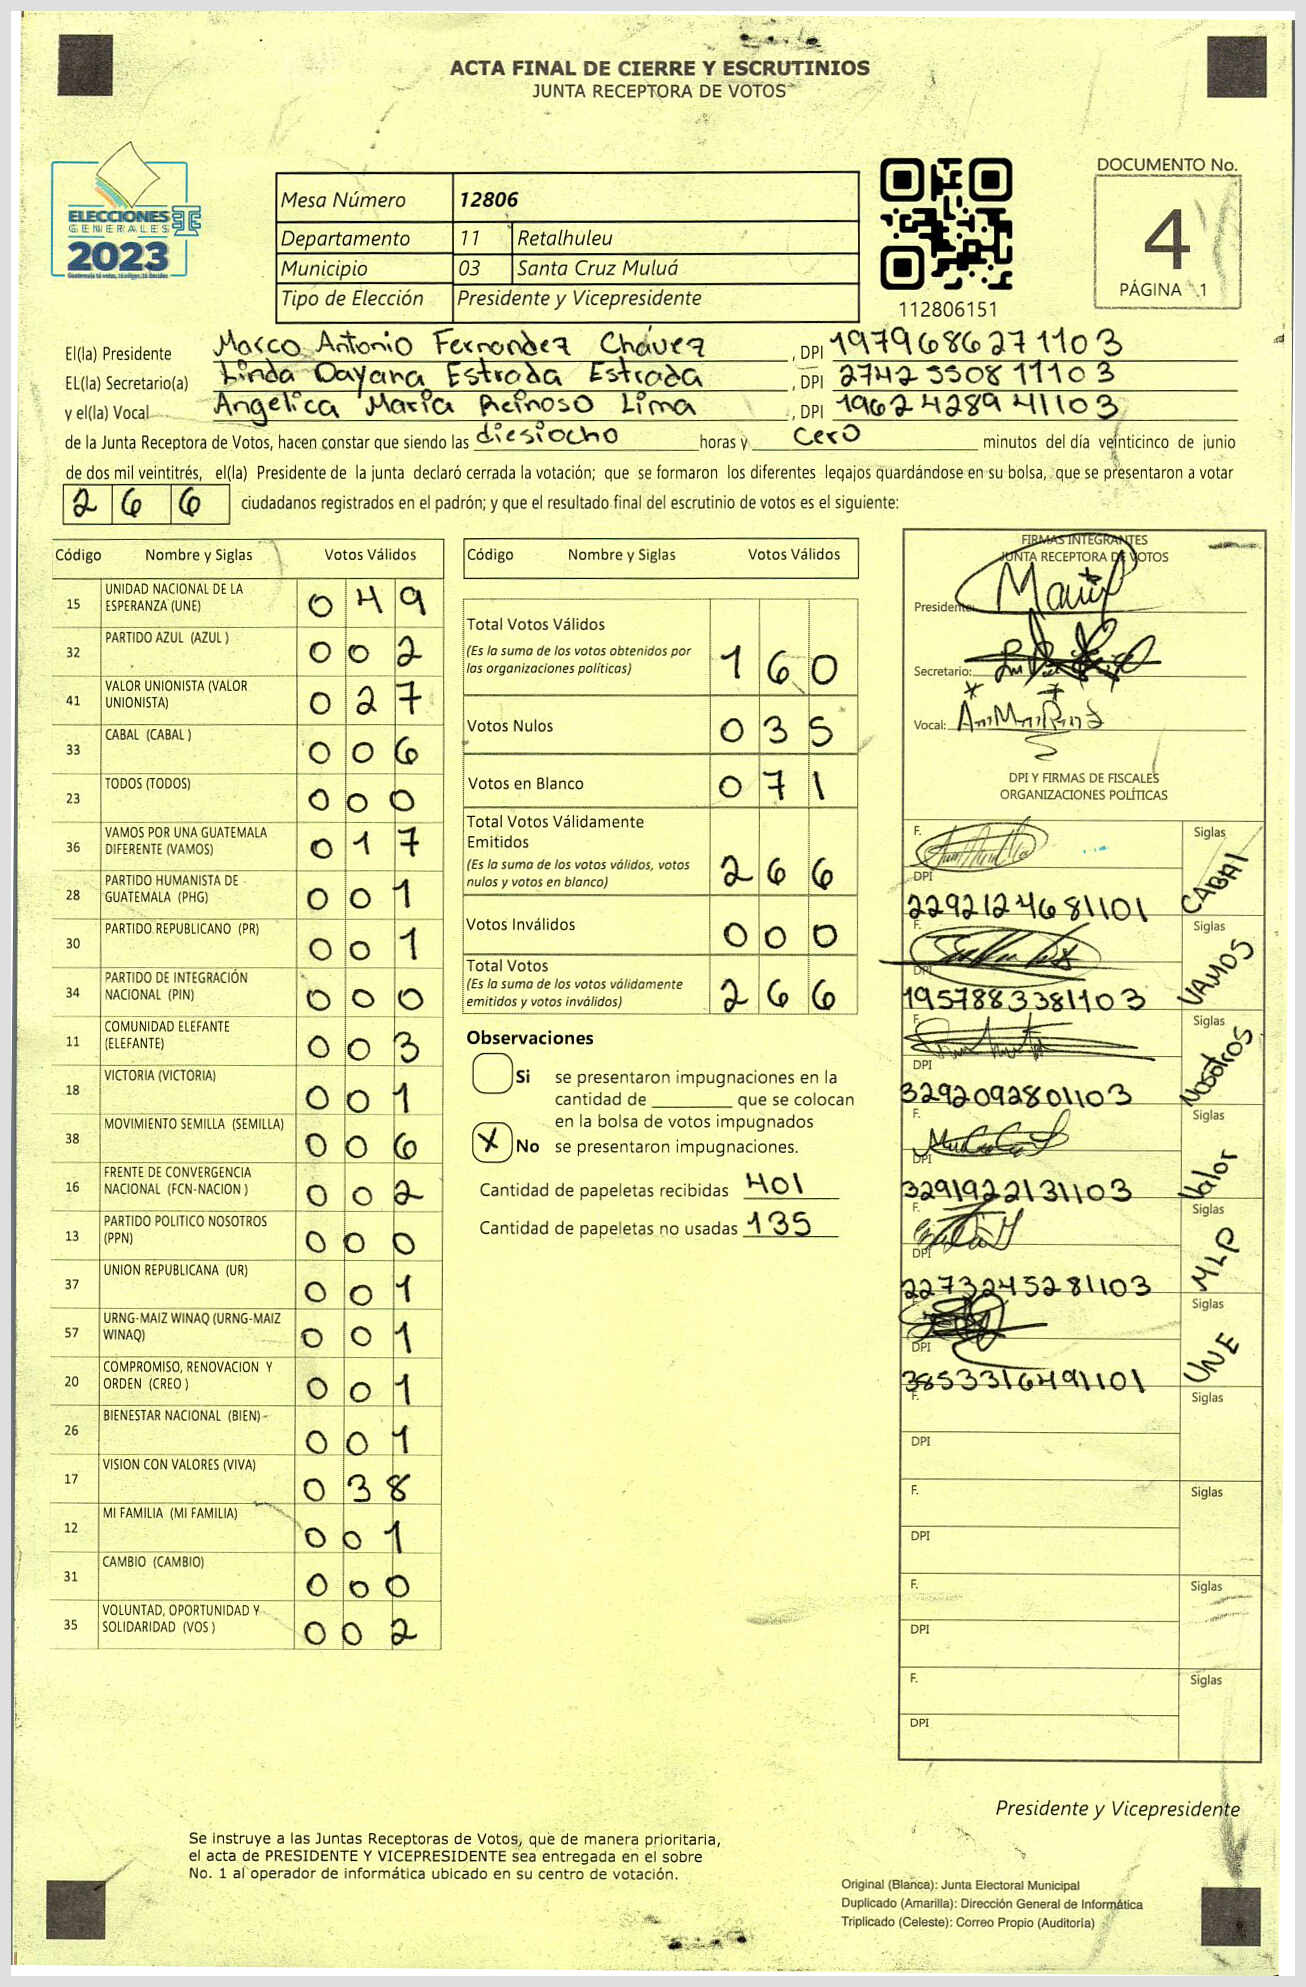 ACTA FINAL DE CIERRE Y ESCRUTINIOS
JUNTA RECEPTORA DE VOTOS
ELECCIONES
GENERALES
2023
Mesa Número 12806
Departamento 11 Retalhuleu
Municipio 03 Santa Cruz Muluá
Tipo de Elección Presidente y Vicepresidente
112806151
DOCUMENTO No.
4
PÁGINA 1
El(la) Presidente Marco Antonio Fernandez Chávez , DPI 1979686271103
EL(la) Secretario(a) Linda Dayana Estrada Estrada , DPI 2742550811103
y el(la) Vocal Angelica Maria Reinoso Lima , DPI 1962428941103
de la Junta Receptora de Votos, hacen constar que siendo las diesiocho horas y cero minutos del día veinticinco de junio
de dos mil veintitrés, el(la) Presidente de la junta declaró cerrada la votación; que se formaron los diferentes legajos quardándose en su bolsa, que se presentaron a votar
266 ciudadanos registrados en el padrón; y que el resultado final del escrutinio de votos es el siguiente:
Código Nombre y Siglas Votos Válidos
15 UNIDAD NACIONAL DE LA ESPERANZA (UNE) 049
32 PARTIDO AZUL (AZUL ) 002
41 VALOR UNIONISTA (VALOR UNIONISTA) 027
33 CABAL (CABAL ) 006
23 TODOS (TODOS) 000
36 VAMOS POR UNA GUATEMALA DIFERENTE (VAMOS) 017
28 PARTIDO HUMANISTA DE GUATEMALA (PHG) 001
30 PARTIDO REPUBLICANO (PR) 001
34 PARTIDO DE INTEGRACIÓN NACIONAL (PIN) 000
11 COMUNIDAD ELEFANTE (ELEFANTE) 003
18 VICTORIA (VICTORIA) 001
38 MOVIMIENTO SEMILLA (SEMILLA) 006
16 FRENTE DE CONVERGENCIA NACIONAL (FCN-NACION ) 002
13 PARTIDO POLITICO NOSOTROS (PPN) 000
37 UNION REPUBLICANA (UR) 001
57 URNG-MAIZ WINAQ (URNG-MAIZ WINAQ) 001
20 COMPROMISO, RENOVACION Y ORDEN (CREO ) 001
26 BIENESTAR NACIONAL (BIEN) 001
17 VISION CON VALORES (VIVA) 038
12 MI FAMILIA (MI FAMILIA) 001
31 CAMBIO (CAMBIO) 000
35 VOLUNTAD, OPORTUNIDAD Y SOLIDARIDAD (VOS ) 002
Código Nombre y Siglas Votos Válidos
Total Votos Válidos
(Es la suma de los votos obtenidos por
las organizaciones políticas) 160
Votos Nulos 035
Votos en Blanco 071
Total Votos Válidamente
Emitidos
(Es la suma de los votos válidos, votos
nulos y votos en blanco) 266
Votos Inválidos 000
Total Votos
(Es la suma de los votos válidamente
emitidos y votos inválidos) 266
Observaciones
Si se presentaron impugnaciones en la
cantidad de ________ que se colocan
en la bolsa de votos impugnados
X No se presentaron impugnaciones.
Cantidad de papeletas recibidas 401
Cantidad de papeletas no usadas 135
FIRMAS INTEGRANTES
JUNTA RECEPTORA DE VOTOS
Presidente:
Secretario:
Vocal:
DPI Y FIRMAS DE FISCALES
ORGANIZACIONES POLÍTICAS
F. Siglas
DPI 2292124681101 CABAL
F. Siglas
DPI 1957883381103 VAMOS
F. Siglas
DPI 3292092801103 Nosotros
F. Siglas
DPI 3291922131103 Valor
F. Siglas
DPI 2273245281103 MLP
F. Siglas
DPI 3853316491101 UNE
F. Siglas
DPI
F. Siglas
DPI
F. Siglas
DPI
F. Siglas
DPI
Presidente y Vicepresidente
Se instruye a las Juntas Receptoras de Votos, que de manera prioritaria,
el acta de PRESIDENTE Y VICEPRESIDENTE sea entregada en el sobre
No. 1 al operador de informática ubicado en su centro de votación.
Original (Blanca): Junta Electoral Municipal
Duplicado (Amarilla): Dirección General de Informática
Triplicado (Celeste): Correo Propio (Auditoría)